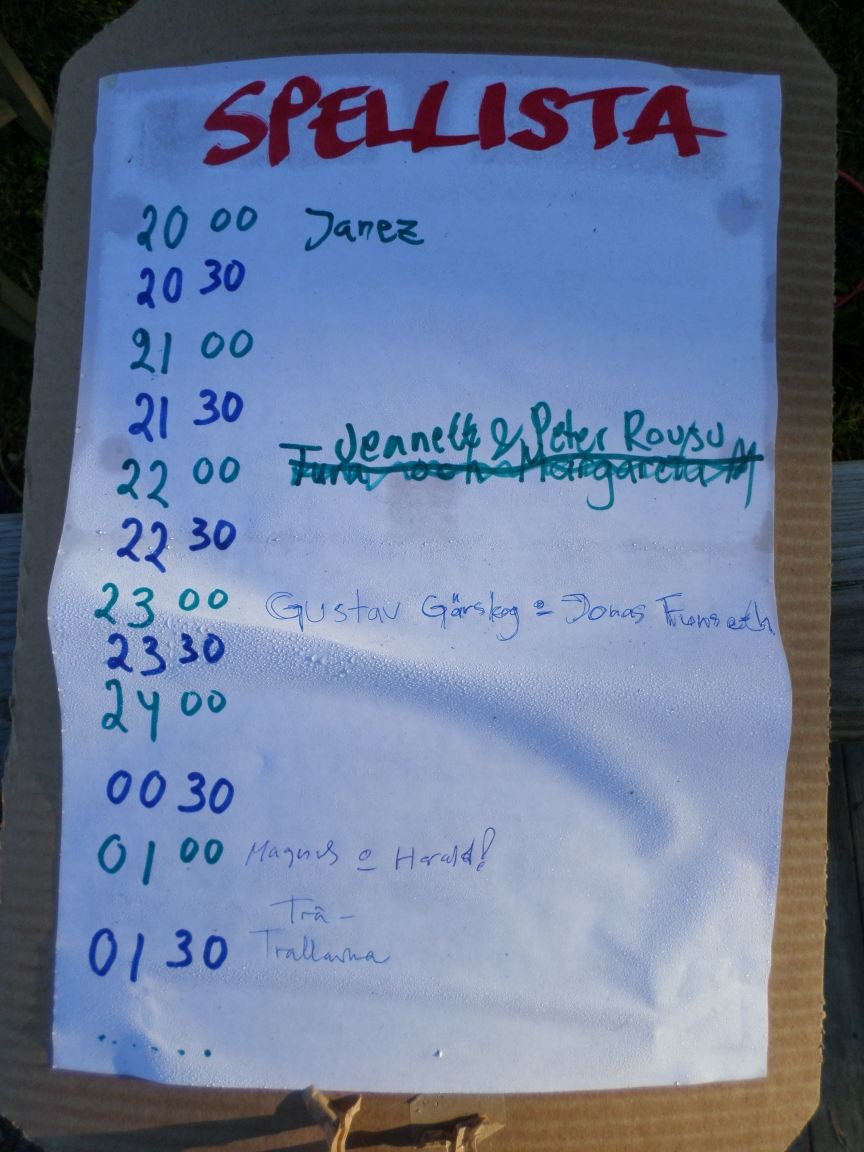 SPELLISTA
20 00 Janez
20 30
21 00
21 30
Jennett & Peter Rousu
22 00 och Margareta M
22 30
23 00 Gustav Gärskog o Jonas
23 30
24 00
00 30
01 00 Magnus o Harald!
Trä-
01 30 Trallarna
......